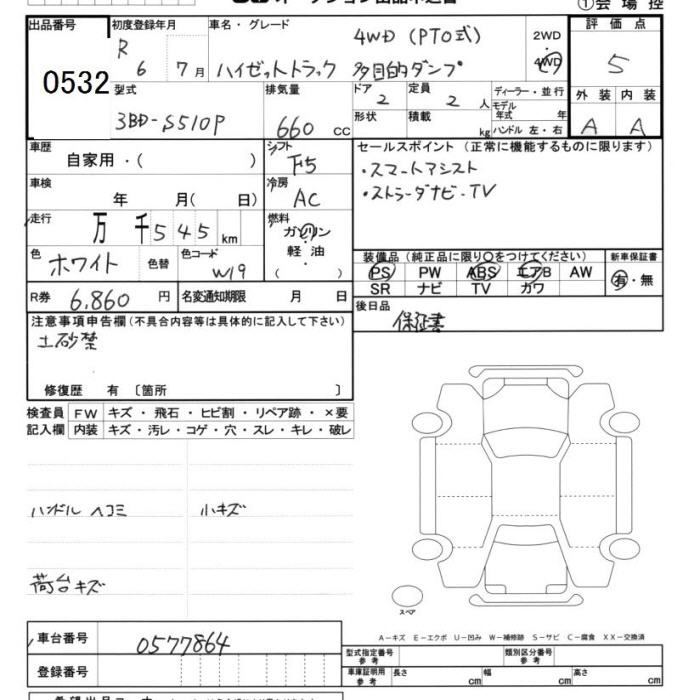 ①会場控
出品番号 初度登録年月 車名・グレード 評価点
R 6 7月 ハイゼットトラック 4WD (PTO式) 多目的ダンプ 2WD・4WD 5
0532
型式 排気量 ドア 定員 ディーラー・並行 外装 内装
3BD-S510P 660 cc 2 2 人 モデル年式 年 A A
形状 積載 kg ハンドル 左・右
車歴 シフト セールスポイント (正常に機能するものに限ります)
自家用・( ) F5 ・スマートアシスト
車検 冷房 ・ストラーダナビ・TV
年 月( 日) AC
走行 燃料
万 千 545 km ガソリン
色 色替 色コード 軽油 装備品 (純正品に限り○をつけてください) 新車保証書
ホワイト W19 ( ) PS PW ABS エアB AW 有・無
SR ナビ TV カワ
R券 6,860 円 名変通知期限 月 日
後日品
注意事項申告欄(不具合内容等は具体的に記入して下さい) 保証書
土砂禁
修復歴 有 〔箇所 〕
検査員 FW キズ・飛石・ヒビ割・リペア跡・×要
記入欄 内装 キズ・汚レ・コゲ・穴・スレ・キレ・破レ
ハンドル ヘコミ 小キズ
荷台キズ
スペア
A-キズ E-エクボ U-凹み W-補修跡 S-サビ C-腐食 XX-交換済
車台番号 0577864
型式指定番号 参考 類別区分番号 参考
登録番号 車庫証明用 参考 長さ cm 幅 cm 高さ cm